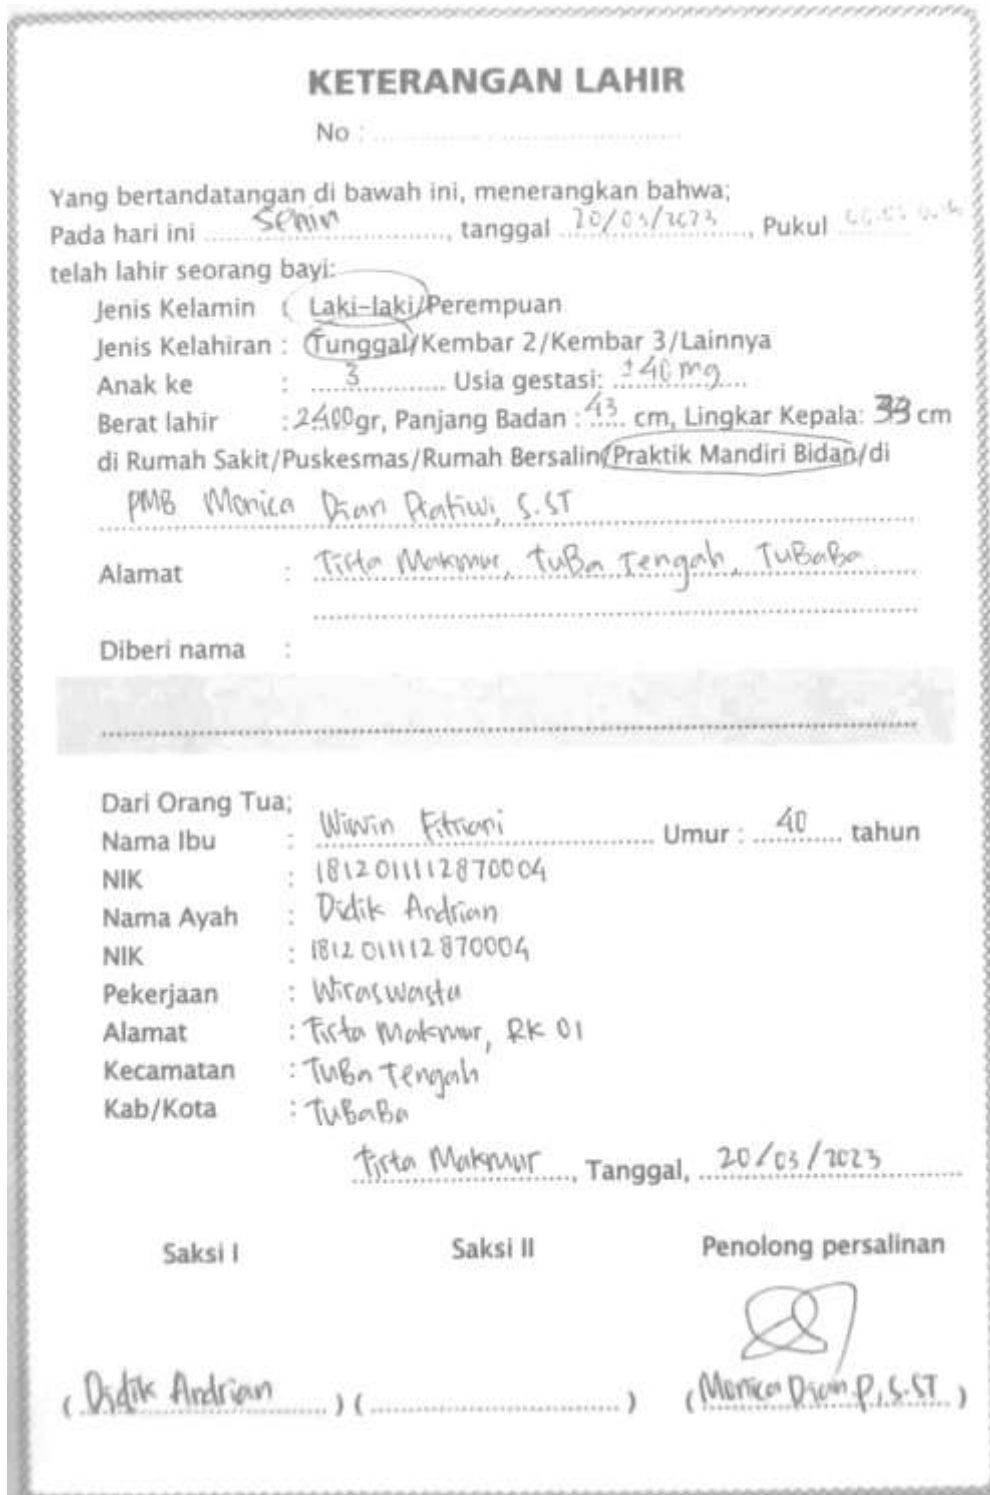 KETERANGAN LAHIR
No :
Yang bertandatangan di bawah ini, menerangkan bahwa;
Pada hari ini Senin, tanggal 20/03/2023, Pukul
telah lahir seorang bayi:
Jenis Kelamin : Laki-laki/Perempuan
Jenis Kelahiran : Tunggal/Kembar 2/Kembar 3/Lainnya
Anak ke : 3 Usia gestasi: ±40 mg
Berat lahir : 2400gr, Panjang Badan : 43 cm, Lingkar Kepala: 33 cm
di Rumah Sakit/Puskesmas/Rumah Bersalin/Praktik Mandiri Bidan/di
PMB Monica Dian Pratiwi, S.ST
Alamat : Tirta Makmur, TuBa Tengah, TuBaBa
Diberi nama :
Dari Orang Tua;
Nama Ibu : Wiwin Fitriani Umur : 40 tahun
NIK : 1812011112870004
Nama Ayah : Didik Andrian
NIK : 1812011112870004
Pekerjaan : Wiraswasta
Alamat : Tirta Makmur, RK 01
Kecamatan : TuBa Tengah
Kab/Kota : TuBaBa
Tirta Makmur, Tanggal, 20/03/2023
Saksi I Saksi II Penolong persalinan
(Didik Andrian) () (Monica Dian.P, S.ST)